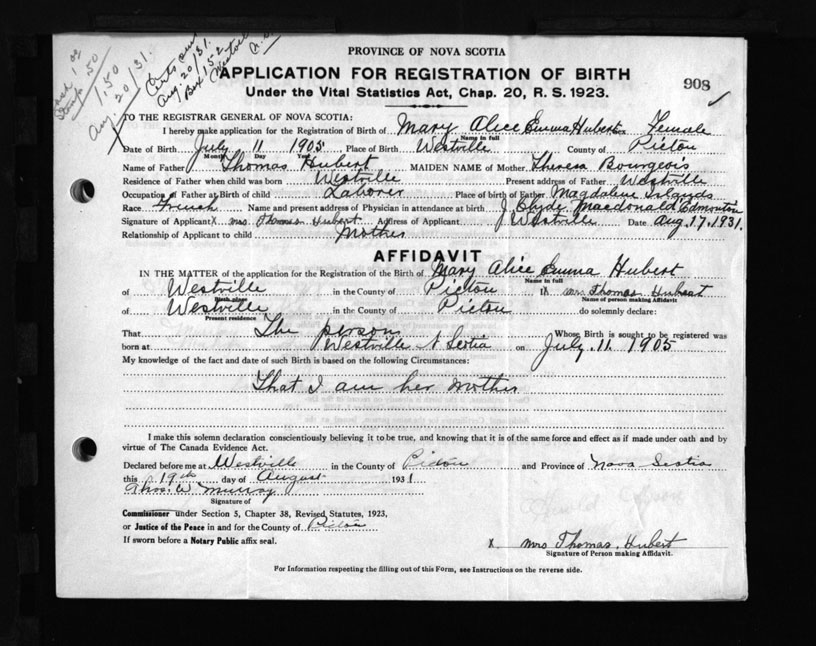 Cash for
Stamp .50
1.50
Aug 20/31.
Certs sent
Aug. 20/31.
Box 152
Westville
N.S.
PROVINCE OF NOVA SCOTIA
APPLICATION FOR REGISTRATION OF BIRTH
908 ✓
Under the Vital Statistics Act, Chap. 20, R. S. 1923.
TO THE REGISTRAR GENERAL OF NOVA SCOTIA:
I hereby make application for the Registration of Birth of Mary Alice Emma Hubert Sex Female
Name in full
Date of Birth July 11 1905 Place of Birth Westville County of Pictou
Month Day Year
Name of Father Thomas Hubert MAIDEN NAME of Mother Theresa Bourgeois
Residence of Father when child was born Westville Present address of Father Westville
Occupation of Father at Birth of Child Laborer Place of Birth of Father Magdaline Islands
Race French Name and present address of Physician in attendance at birth J. Clyde Macdonald Edmonton
Signature of Applicant X Mrs Thomas Hubert Address of Applicant Westville Date Aug. 17, 1931.
Relationship of Applicant to child Mother
AFFIDAVIT
IN THE MATTER of the application for the Registration of the Birth of Mary Alice Emma Hubert
Name in full
of Westville in the County of Pictou I, Mrs Thomas Hubert
Birth place Name of person making Affidavit
of Westville in the County of Pictou do solemnly declare:
Present residence
That The person Whose Birth is sought to be registered was
born at Westville N Scotia on July. 11. 1905
My knowledge of the fact and date of such Birth is based on the following Circumstances:
That I am her mother
I make this solemn declaration conscientiously believing it to be true, and knowing that it is of the same force and effect as if made under oath and by
virtue of The Canada Evidence Act.
Declared before me at Westville in the County of Pictou and Province of Nova Scotia
this 19th day of August 1931
Thos. W. Murray
Signature of
Commissioner under Section 5, Chapter 38, Revised Statutes, 1923,
or Justice of the Peace in and for the County of Pictou
If sworn before a Notary Public affix seal.
X. Mrs Thomas. Hubert
Signature of Person making Affidavit.
For Information respecting the filling out of this Form, see Instructions on the reverse side.